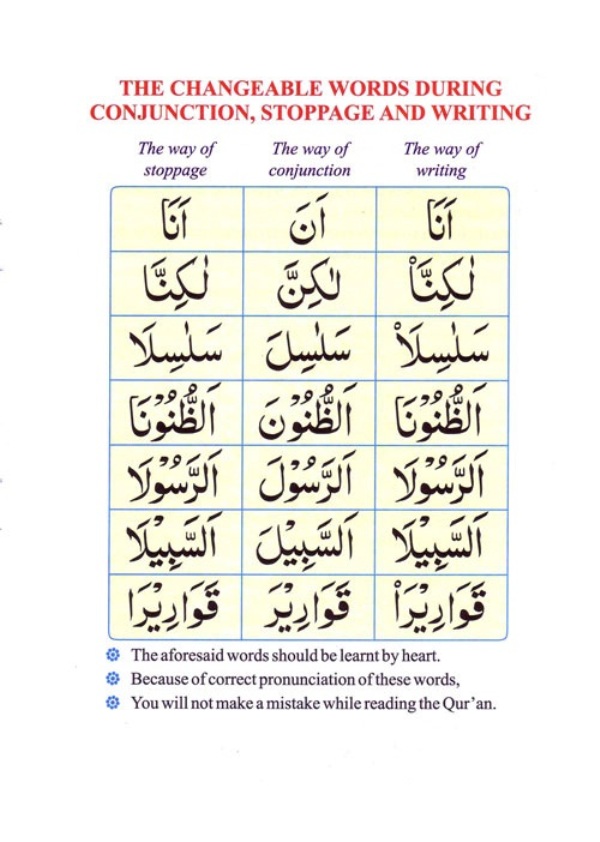 THE CHANGEABLE WORDS DURING
CONJUNCTION, STOPPAGE AND WRITING
The way of stoppage The way of conjunction The way of writing
اَنَا اَنَ اَنَا
لٰكِنَّا لٰكِنَّ لٰكِنَّا۠
سَلٰسِلَا سَلٰسِلَ سَلٰسِلَا۠
اَلظُّنُوْنَا اَلظُّنُوْنَ اَلظُّنُوْنَا
اَلرَّسُوْلَا اَلرَّسُوْلَ اَلرَّسُوْلَا
اَلسَّبِيْلَا اَلسَّبِيْلَ اَلسَّبِيْلَا
قَوَارِيْرَا قَوَارِيْرَ قَوَارِيْرَا۠
The aforesaid words should be learnt by heart.
Because of correct pronunciation of these words,
You will not make a mistake while reading the Qur'an.